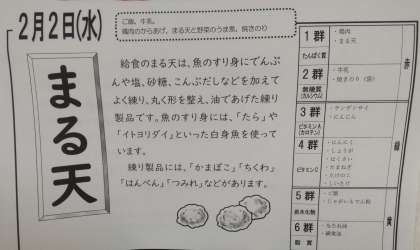 2月2日(水)
ご飯、牛乳、
鶏肉のからあげ、まる天と野菜のうま煮、焼きのり
まる天
給食のまる天は、魚のすり身にでんぷ
んや塩、砂糖、こんぶだしなどを加えて
よく練り、丸く形を整え、油であげた練り
製品です。魚のすり身には、「たら」や
「イトヨリダイ」といった白身魚を使って
います。
練り製品には、「かまぼこ」「ちくわ」
「はんぺん」「つみれ」などがあります。
1群
たんぱく質
・鶏肉
・まる天
2群
無機質
(カルシウム)
・牛乳
・焼きのり（袋）
3群
ビタミンA
(カロテン)
・チンゲンサイ
・にんじん
4群
ビタミンC
・にんにく
・しょうが
・はくさい
・たまねぎ
・たけのこ
・しいたけ
5群
炭水化物
・ご飯
・じゃがいもでん粉
6群
脂質